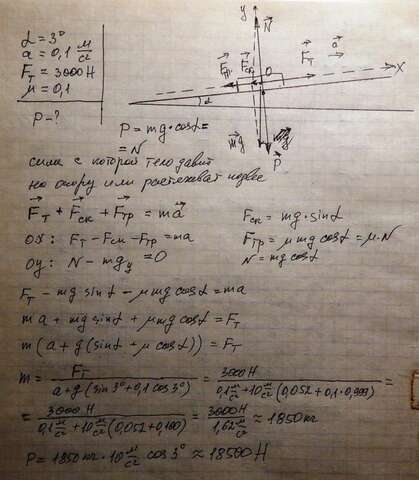 α = 3°
a = 0,1 м/с²
Fт = 3000 Н
μ = 0,1
P - ?
y
N
Fтр Fск O Fт a X
α
mg
P
P = mg·cosα =
= N
сила с которой тело давит
на опору или растягивает подвес
Fт + Fск + Fтр = ma
Fск = mg·sinα
OX: Fт - Fск - Fтр = ma
Fтр = μmg cosα = μ·N
OY: N - mgy = 0
N = mg cosα
Fт - mg sinα - μmg cosα = ma
ma + mg sinα + μmg cosα = Fт
m(a + g(sinα + μ cosα)) = Fт
m = Fт / (a + g(sin3° + 0,1 cos3°)) = 3000 Н / (0,1 м/с² + 10 м/с² (0,052 + 0,1·0,999)) =
= 3000 Н / (0,1 м/с² + 10 м/с² (0,052 + 0,100)) = 3000 Н / 1,62 м/с² ≈ 1850 кг
P = 1850 кг · 10 м/с² cos3° ≈ 18500 Н